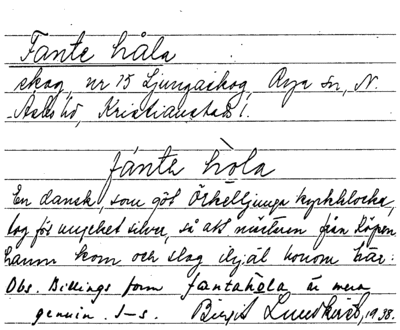 Fante håla
skog, nr 15 Ljungaskog, Rya sn, N.
Åsbo hd, Kristianstads l.
fánte hòla
En dansk, som göt Örkelljunga kyrkklocka,
tog för mycket silver, så att mästern från Köpen
hamn kom och slog ihjäl honom här:
Obs. Billings form fantahòla är mera
genuin. I-s. Birgit Lundkvist, 1938.